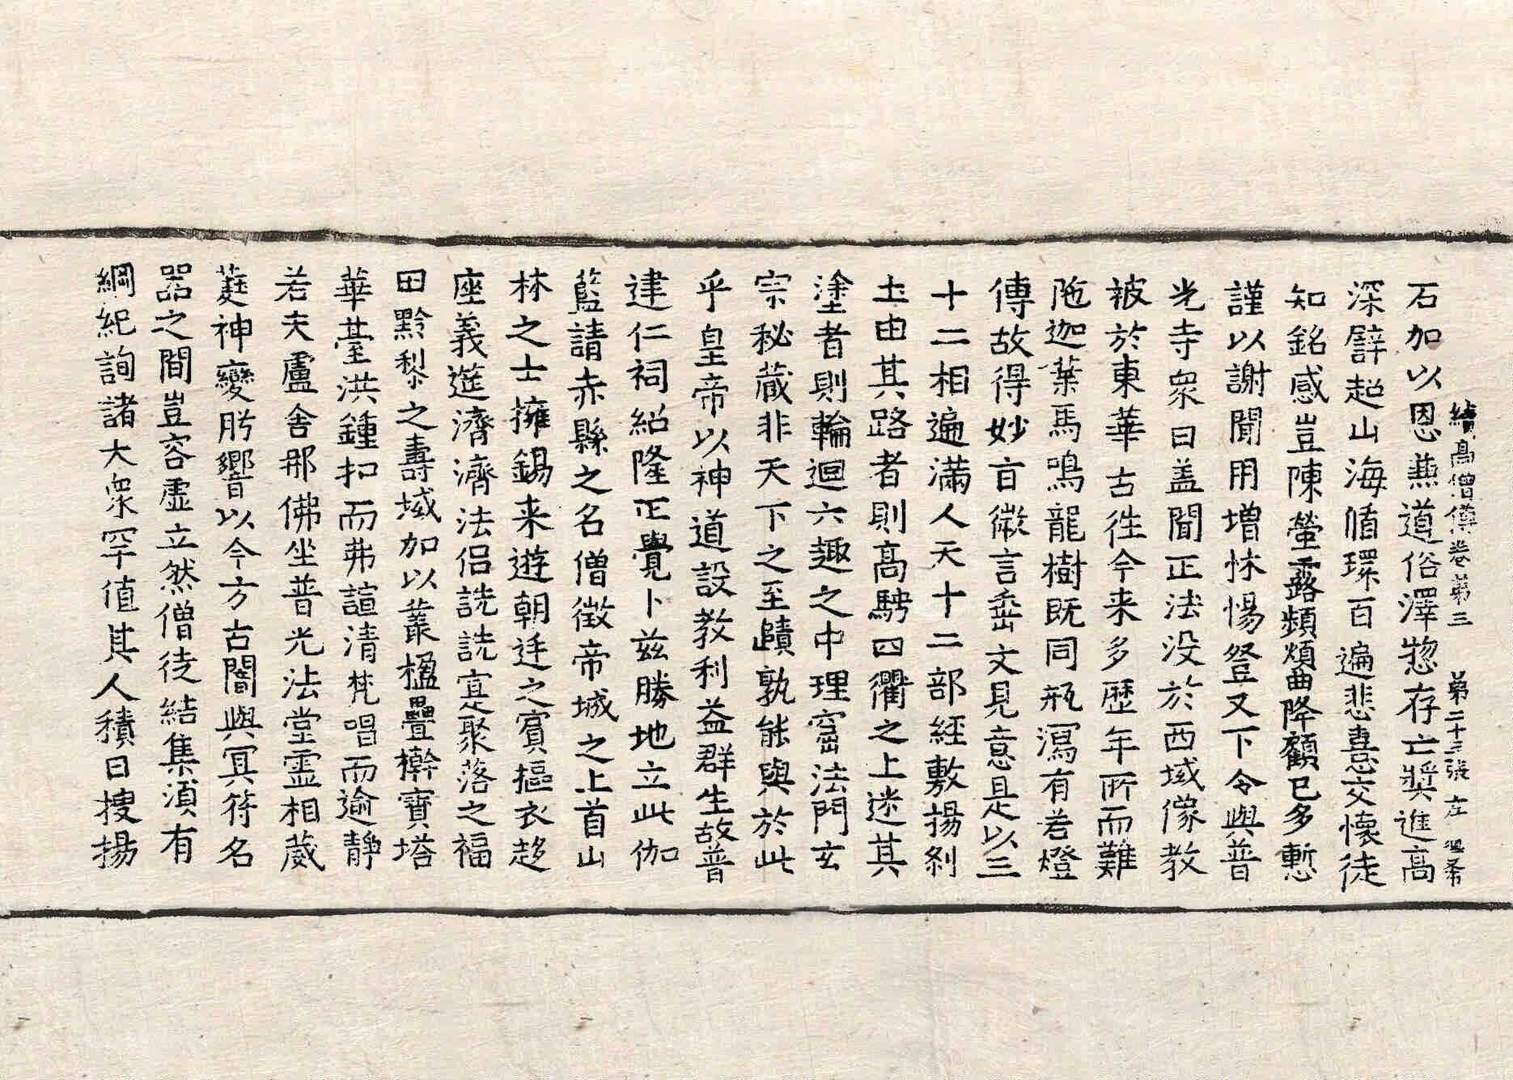 石加以恩燕道俗澤惣存亡獎進髙
續髙僧傳卷第三　第二十三張　左
深譬起山海循環百遍悲憙交懷徒
知銘感豈陳螢露頻煩曲降顧已多慙
謹以謝聞用增悚惕登又下令與普
光寺衆曰盖聞正法没於西域像教
被於東華古往今来多歷年所而難
陁迦葉馬鳴龍樹既同瓶瀉有若燈
傳故得妙㫖微言垂文見意是以三
十二相遍滿人天十二部經敷揚刹
土由其路者則髙騁四衢之上迷其
塗者則輪迴六趣之中理窟法門玄
宗秘蔵非天下之至賾孰能與於此
乎皇帝以神道設教利益群生故普
建仁祠紹隆正覺卜兹勝地立此伽
藍請赤縣之名僧徴帝城之上首山
林之士擁錫来遊朝廷之賓摳衣趍
座義筵濟濟法侣詵詵寔聚落之福
田黔黎之壽域加以叢楹疊𣟄寶塔
華臺洪鍾扣而弗諠清梵唱而逾靜
若夫盧舎那佛坐普光法堂靈相葳
蕤神變肹響以今方古闇與冥符名
器之間豈容虚立然僧徒結集湏有
綱紀詢諸大衆罕值其人積日搜揚